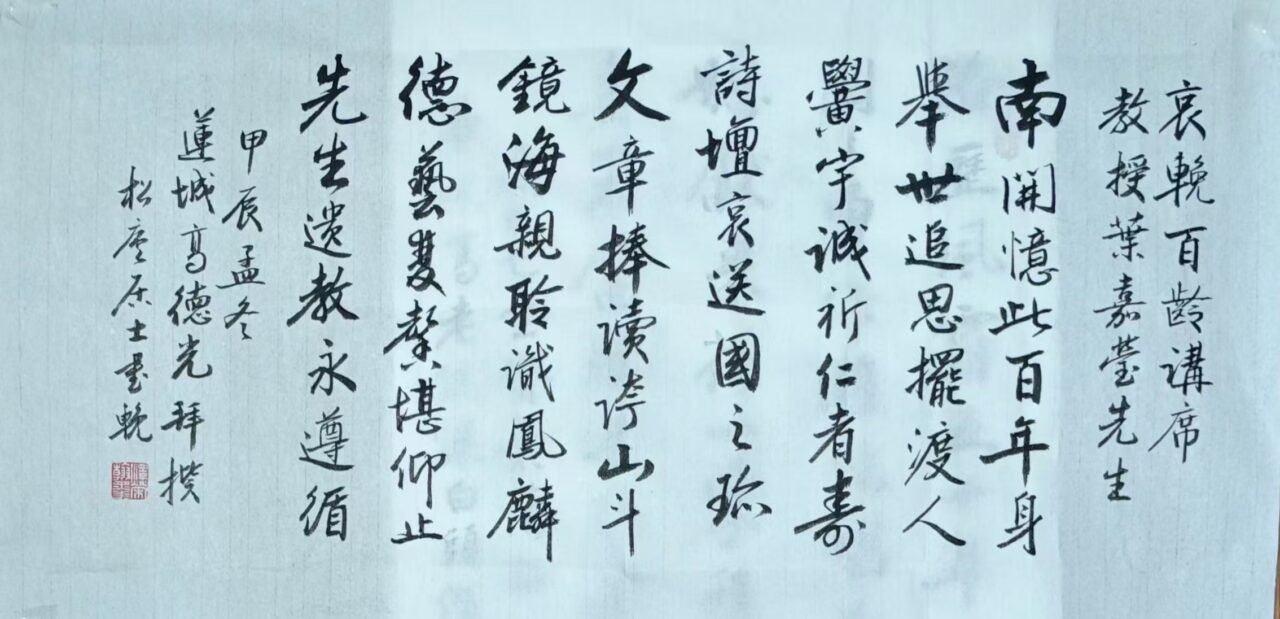 哀輓百齡講席
教授葉嘉瑩先生
南開憶此百年身
舉世追思擺渡人
黌宇誠祈仁者壽
詩壇哀送國之珍
文章捧讀誇山斗
鏡海親聆識鳳麟
德藝雙馨堪仰止
先生遺教永遵循
甲辰孟冬
蓮城高德光拜撰
松廬居士書輓